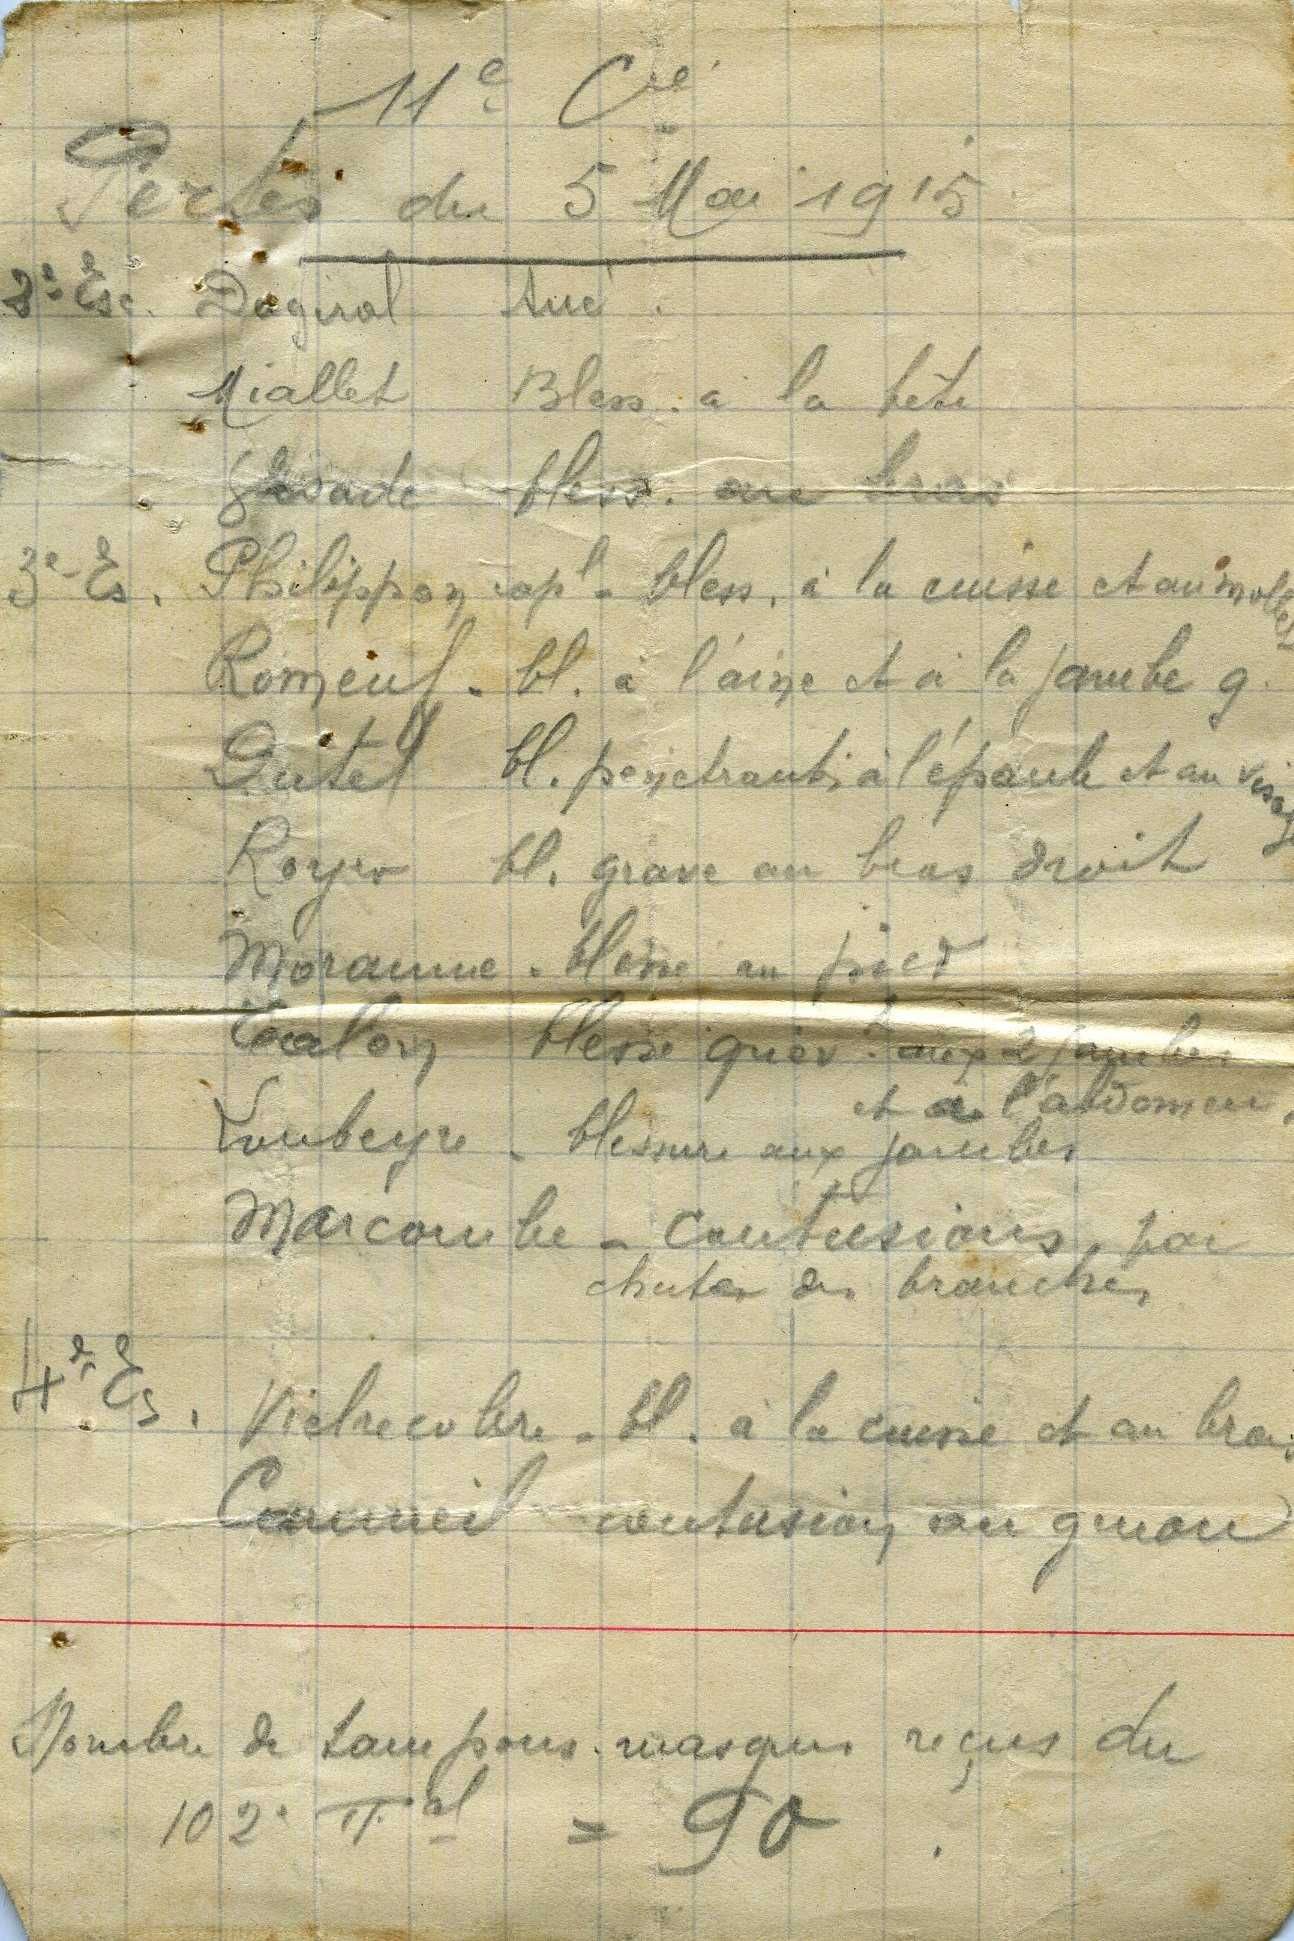 11e Cie
Pertes du 5 Mai 1915
2e Esc. Dagiral tué.
Miallet Bless. à la tête
bless. au bras
3e Es. Philippon capl - bless. à la cuisse et au mollet
Romeuf - bl. à l'aine et à la jambe g.
Dutel bl. penetrante à l'épaule et au visage
Royer bl. grave au bras droit
Moranne - blessé au pied
Talon blessé grièvt aux 2 jambes
et à l'abdomen.
Loubeyre - blessure aux jambes
Marcombe - contusions par
chutes des branches
4e Es. - bl. à la cuisse et au bras
contusion au genou
Nombre de tampons-masques reçus du
102e Tal = 90.